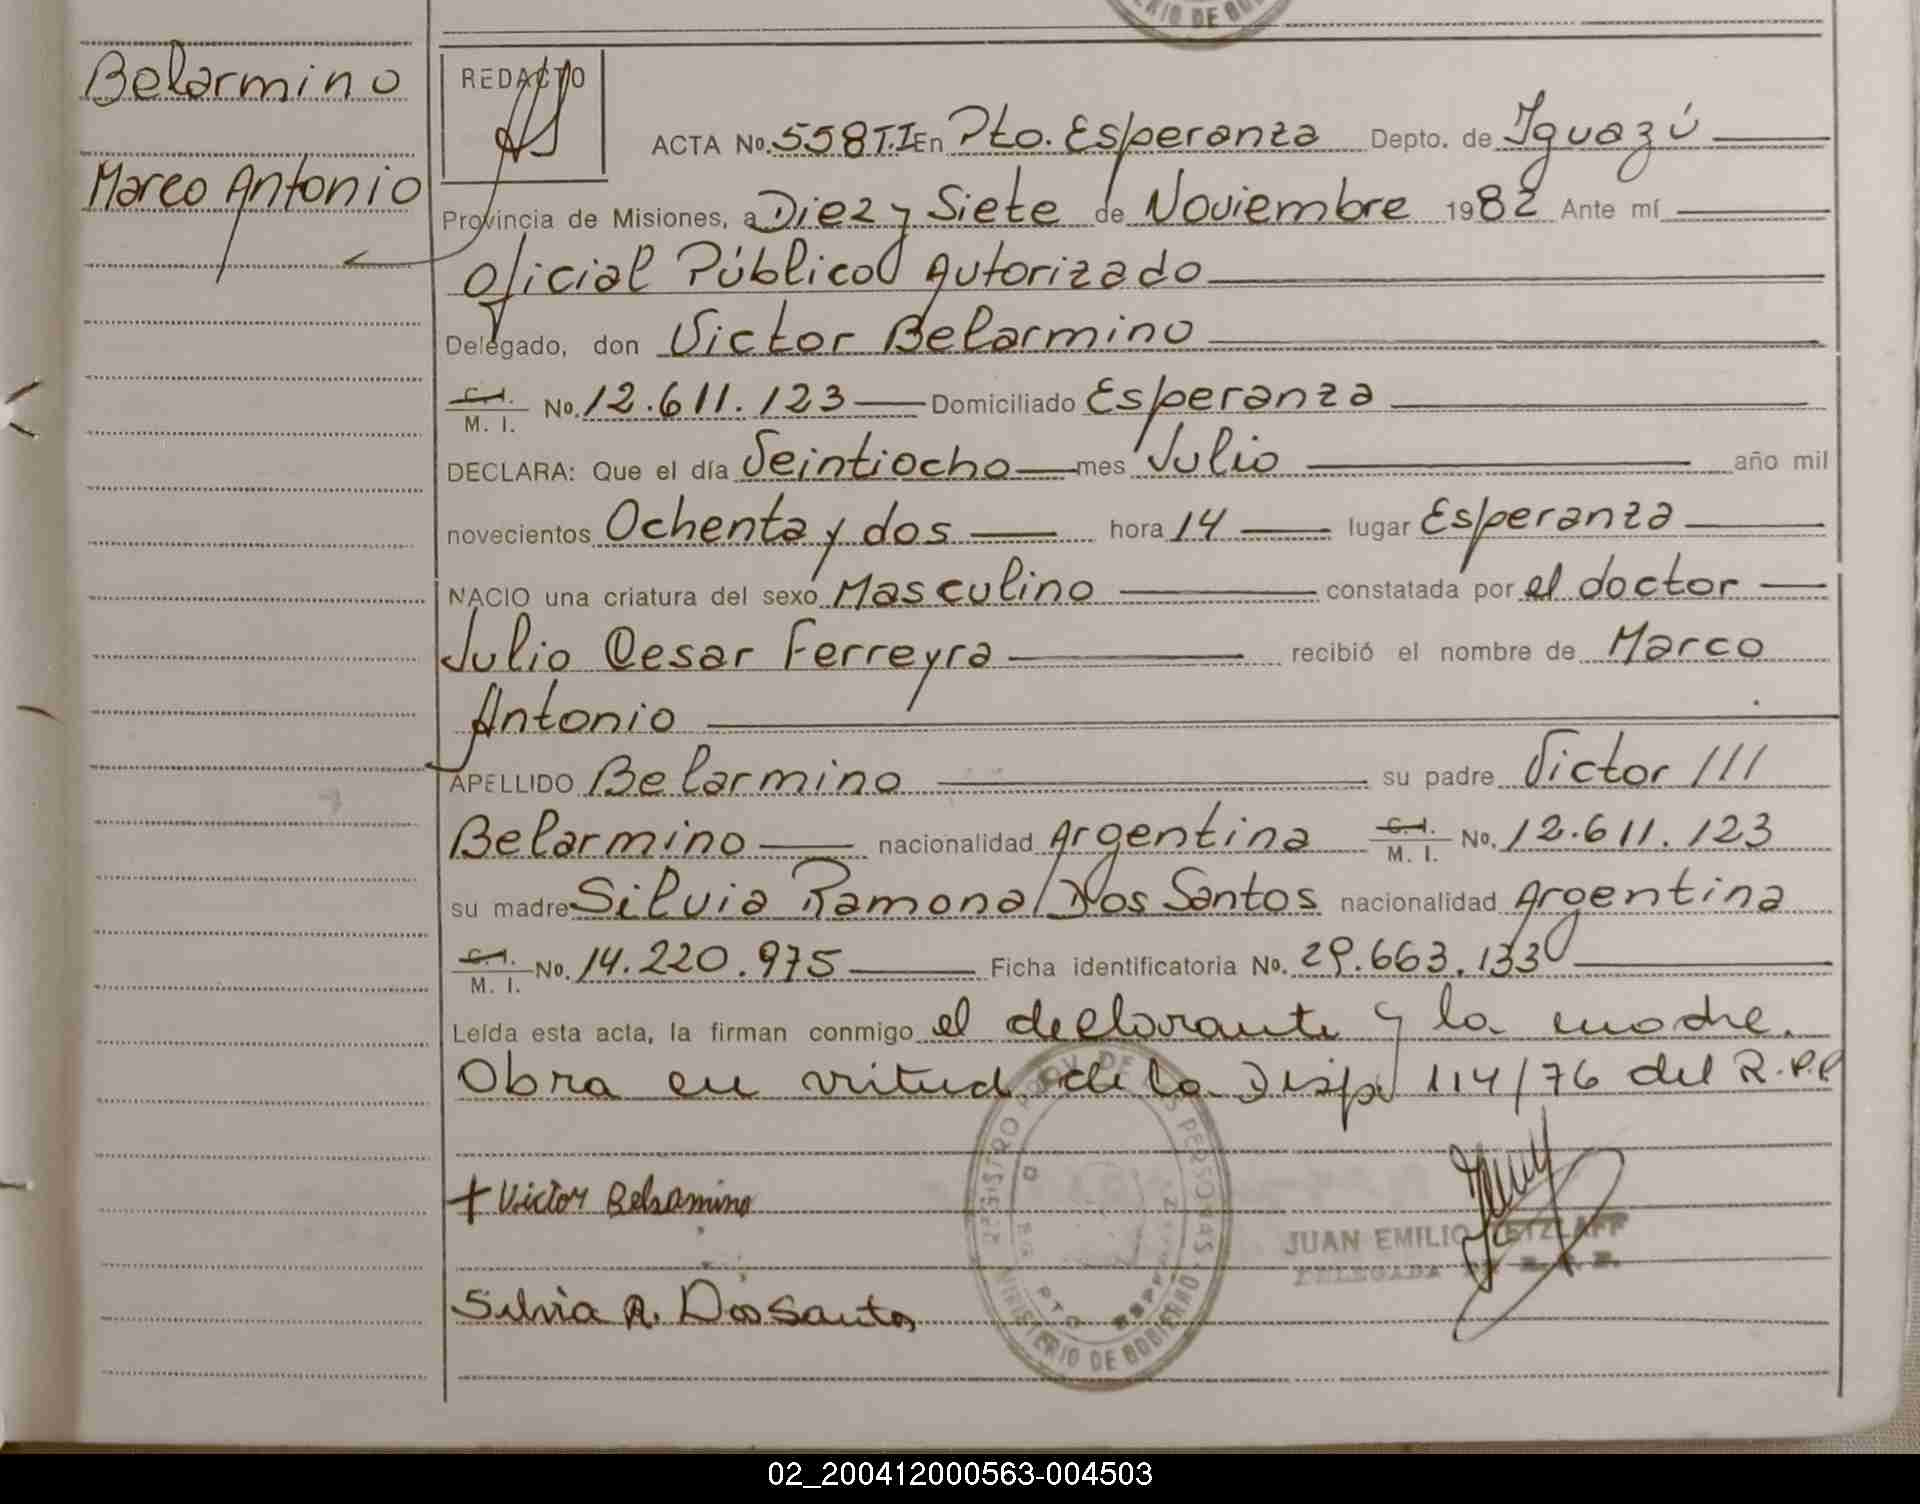 RIO DE GOB
Belarmino
Marco Antonio
REDACTO
ACTA No. 558 T.I En Pto. Esperanza Depto. de Iguazú
Provincia de Misiones, a Diez y Siete de Noviembre 1982 Ante mí
Oficial Público Autorizado
Delegado, don Victor Belarmino
C.I. M. I. No. 12.611.123 Domiciliado Esperanza
DECLARA: Que el día Veintiocho mes Julio año mil
novecientos Ochenta y dos hora 14 lugar Esperanza
NACIO una criatura del sexo Masculino constatada por el doctor
Julio Cesar Ferreyra recibió el nombre de Marco
Antonio
APELLIDO Belarmino su padre Victor ///
Belarmino nacionalidad Argentina C.I. M. I. No. 12.611.123
su madre Silvia Ramona Dos Santos nacionalidad Argentina
C.I. M. I. No. 14.220.975 Ficha identificatoria No. 29.663.133
Leída esta acta, la firman conmigo el declarante y la madre.
Obra en vritud de la Disp 114/76 del R.P.P
REGISTRO PROV. DE LAS PERSONAS
MINISTERIO DE GOBIERNO
PTO
+ Victor Belsamino
JUAN EMILIO
DELEGADA
Silvia R. Dos Santos
02_200412000563-004503